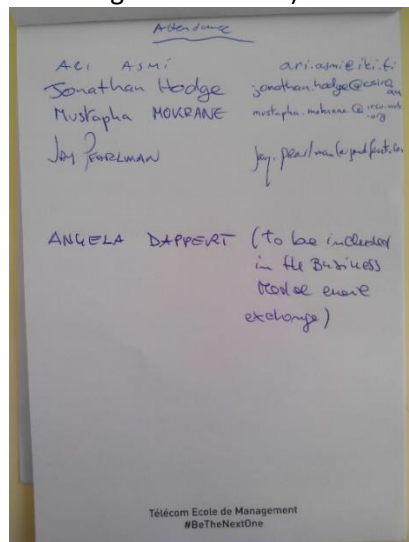 Attendance
ARI ASMI ari.asmi@iki.fi
Jonathan Hodge jonathan.hodge@csiro.au
Mustapha MOKRANE mustapha.mokrane@icsu-wds.org
Jay PEARLMAN
ANGELA DAPPERT (to be included
in the Business
Model
exchange)
Télécom Ecole de Management
#BeTheNextOne